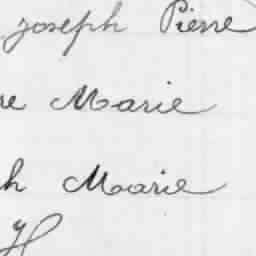 Joseph Pierre
re Marie
h Marie